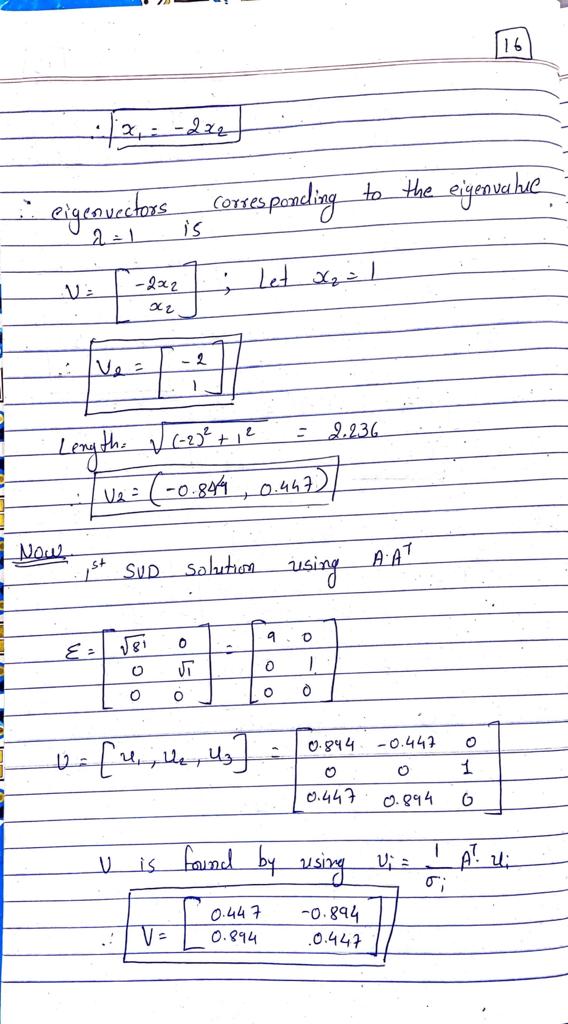 16
∴ x₁ = -2x₂
∴ eigenvectors corresponding to the eigenvalue
λ = 1 is
V = [ -2x₂ ; x₂ ] ; Let x₂ = 1
∴ V₂ = [ -2 ; 1 ]
Length = √(-2)² + 1² = 2.236
∴ V₂ = (-0.894, 0.447)
Now
1st SVD solution using A·Aᵀ
Ɛ = [ √81 0 ; 0 √1 ; 0 0 ] = [ 9 0 ; 0 1 ; 0 0 ]
U = [u₁, u₂, u₃] = [ 0.894 -0.447 0 ; 0 0 1 ; 0.447 0.894 0 ]
V is found by using vᵢ = 1/σᵢ Aᵀ. uᵢ
∴ V = [ 0.447 -0.894 ; 0.894 0.447 ]